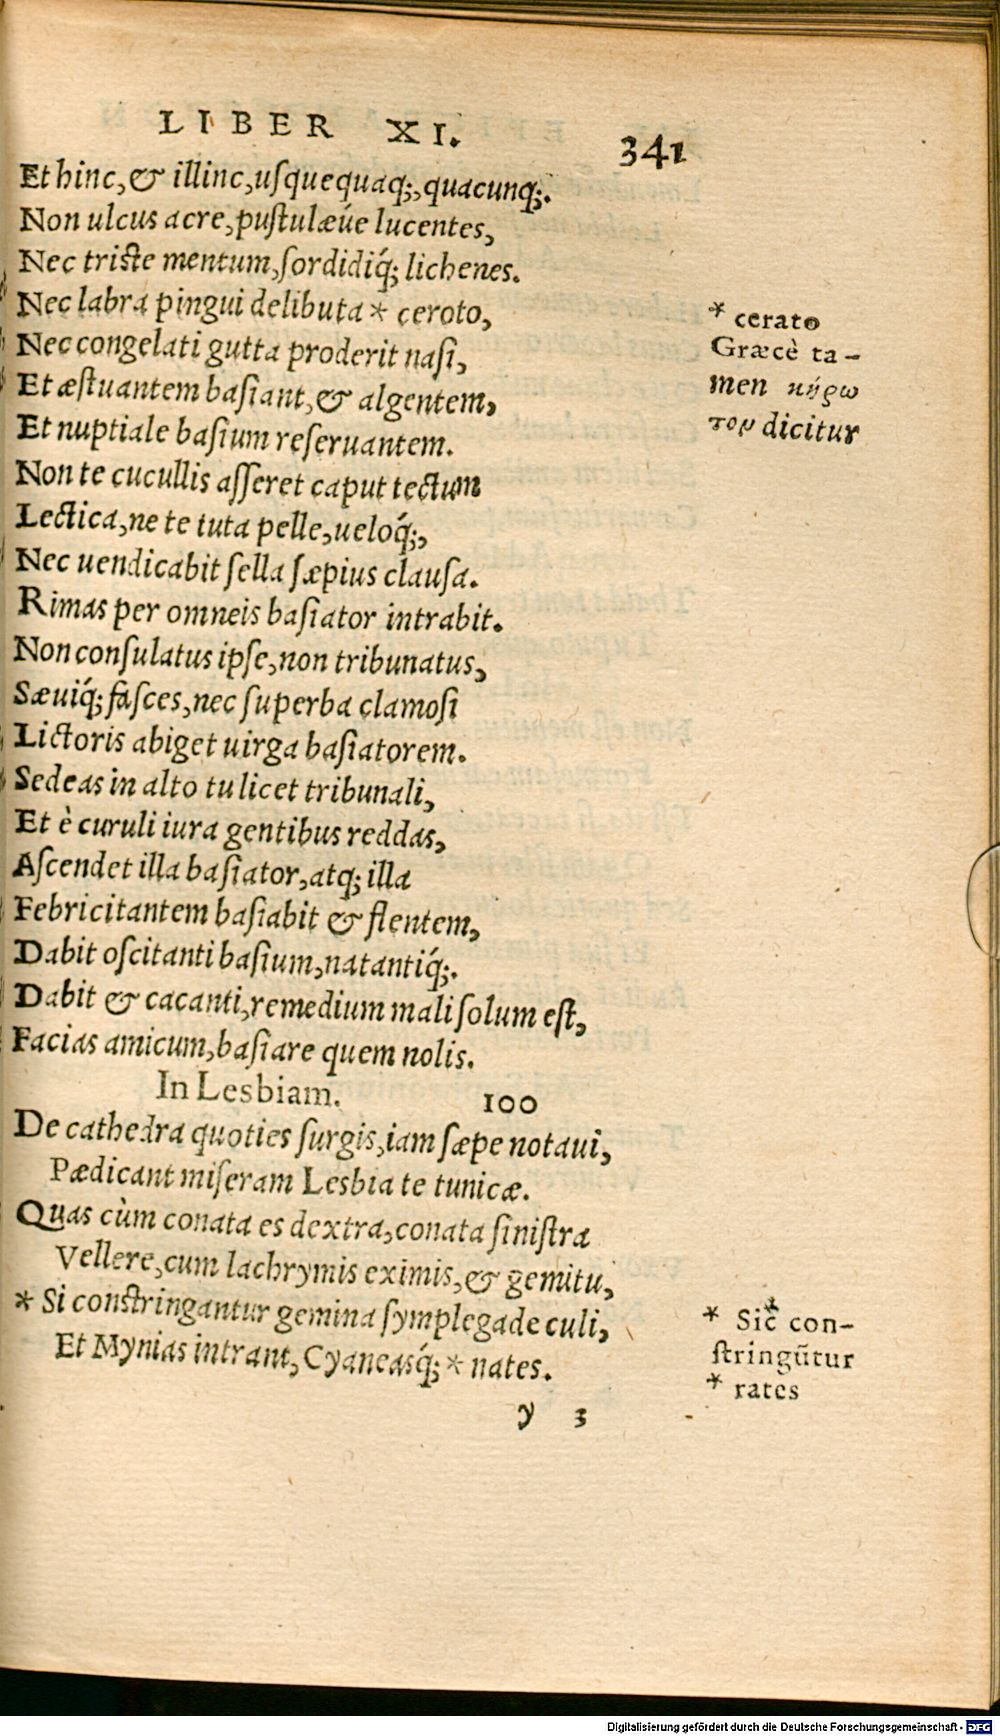 LIBER XI. 341
Et hinc, & illinc, usquequaq;, quacunq;.
Non ulcus acre, pustulæúe lucentes,
Nec triste mentum, sordidiq́; lichenes.
Nec labra pingui delibuta * ceroto,
Nec congelati gutta proderit nasi,
Et æstuantem basiant, & algentem,
Et nuptiale basium reseruantem.
Non te cucullis asseret caput tectum
Lectica, ne te tuta pelle, ueloq́;,
Nec uendicabit sella sæpius clausa.
Rimas per omneis basiator intrabit.
Non consulatus ipse, non tribunatus,
Sæuiq́; fasces, nec superba clamosi
Lictoris abiget uirga basiatorem.
Sedeas in alto tu licet tribunali,
Et è curuli iura gentibus reddas,
Ascendet illa basiator, atq; illa
Febricitantem basiabit & flentem,
Dabit oscitanti basium, natantiq́;.
Dabit & cacanti, remedium mali solum est,
Facias amicum, basiare quem nolis.
In Lesbiam. 100
De cathedra quoties surgis, iam sæpe notaui,
Pædicant miseram Lesbia te tunicæ.
Quas cùm conata es dextra, conata sinistra
Vellere, cum lachrymis eximis, & gemitu,
* Si constringantur gemina symplegade culi,
Et Mynias intrant, Cyaneasq́; * nates.
y 3
* cerato
Græcè ta-
men κήρω
τον dicitur
* Sic con-
stringũtur
* rates
Digitalisierung gefördert durch die Deutsche Forschungsgemeinschaft - DFG